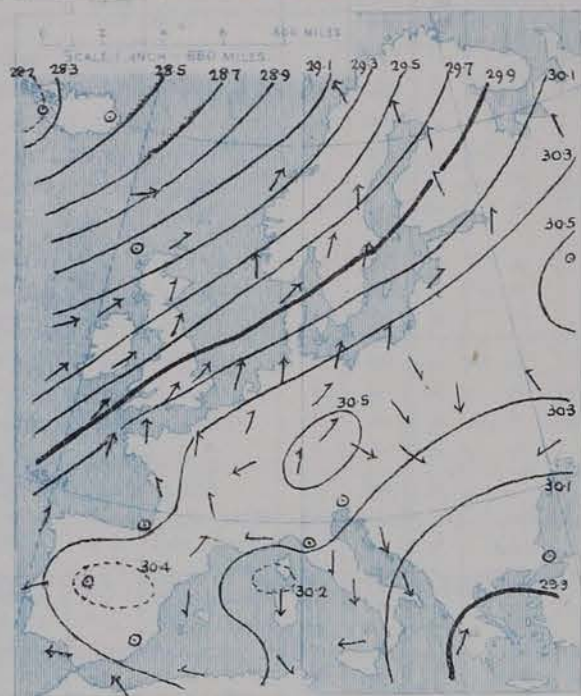 600 MILES
SCALE 1 INCH = 660 MILES
28.2 28.3 28.5 28.7 28.9 29.1 29.3 29.5 29.7 29.9 30.1
30.3
30.5
30.5
30.3
30.1
30.4
30.2
29.9